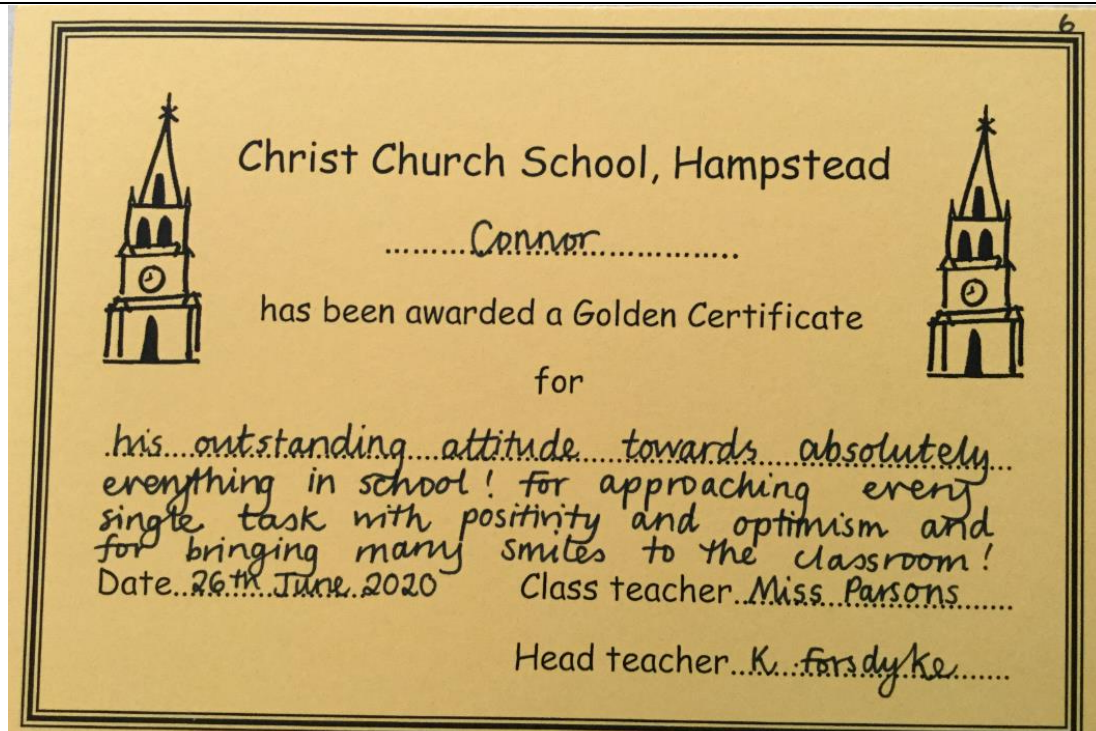 6
Christ Church School, Hampstead
Connor
has been awarded a Golden Certificate
for
his outstanding attitude towards absolutely
everything in school! For approaching every
single task with positivity and optimism and
for bringing many smiles to the classroom!
Date 26th June 2020 Class teacher Miss Parsons
Head teacher K. Forsdyke